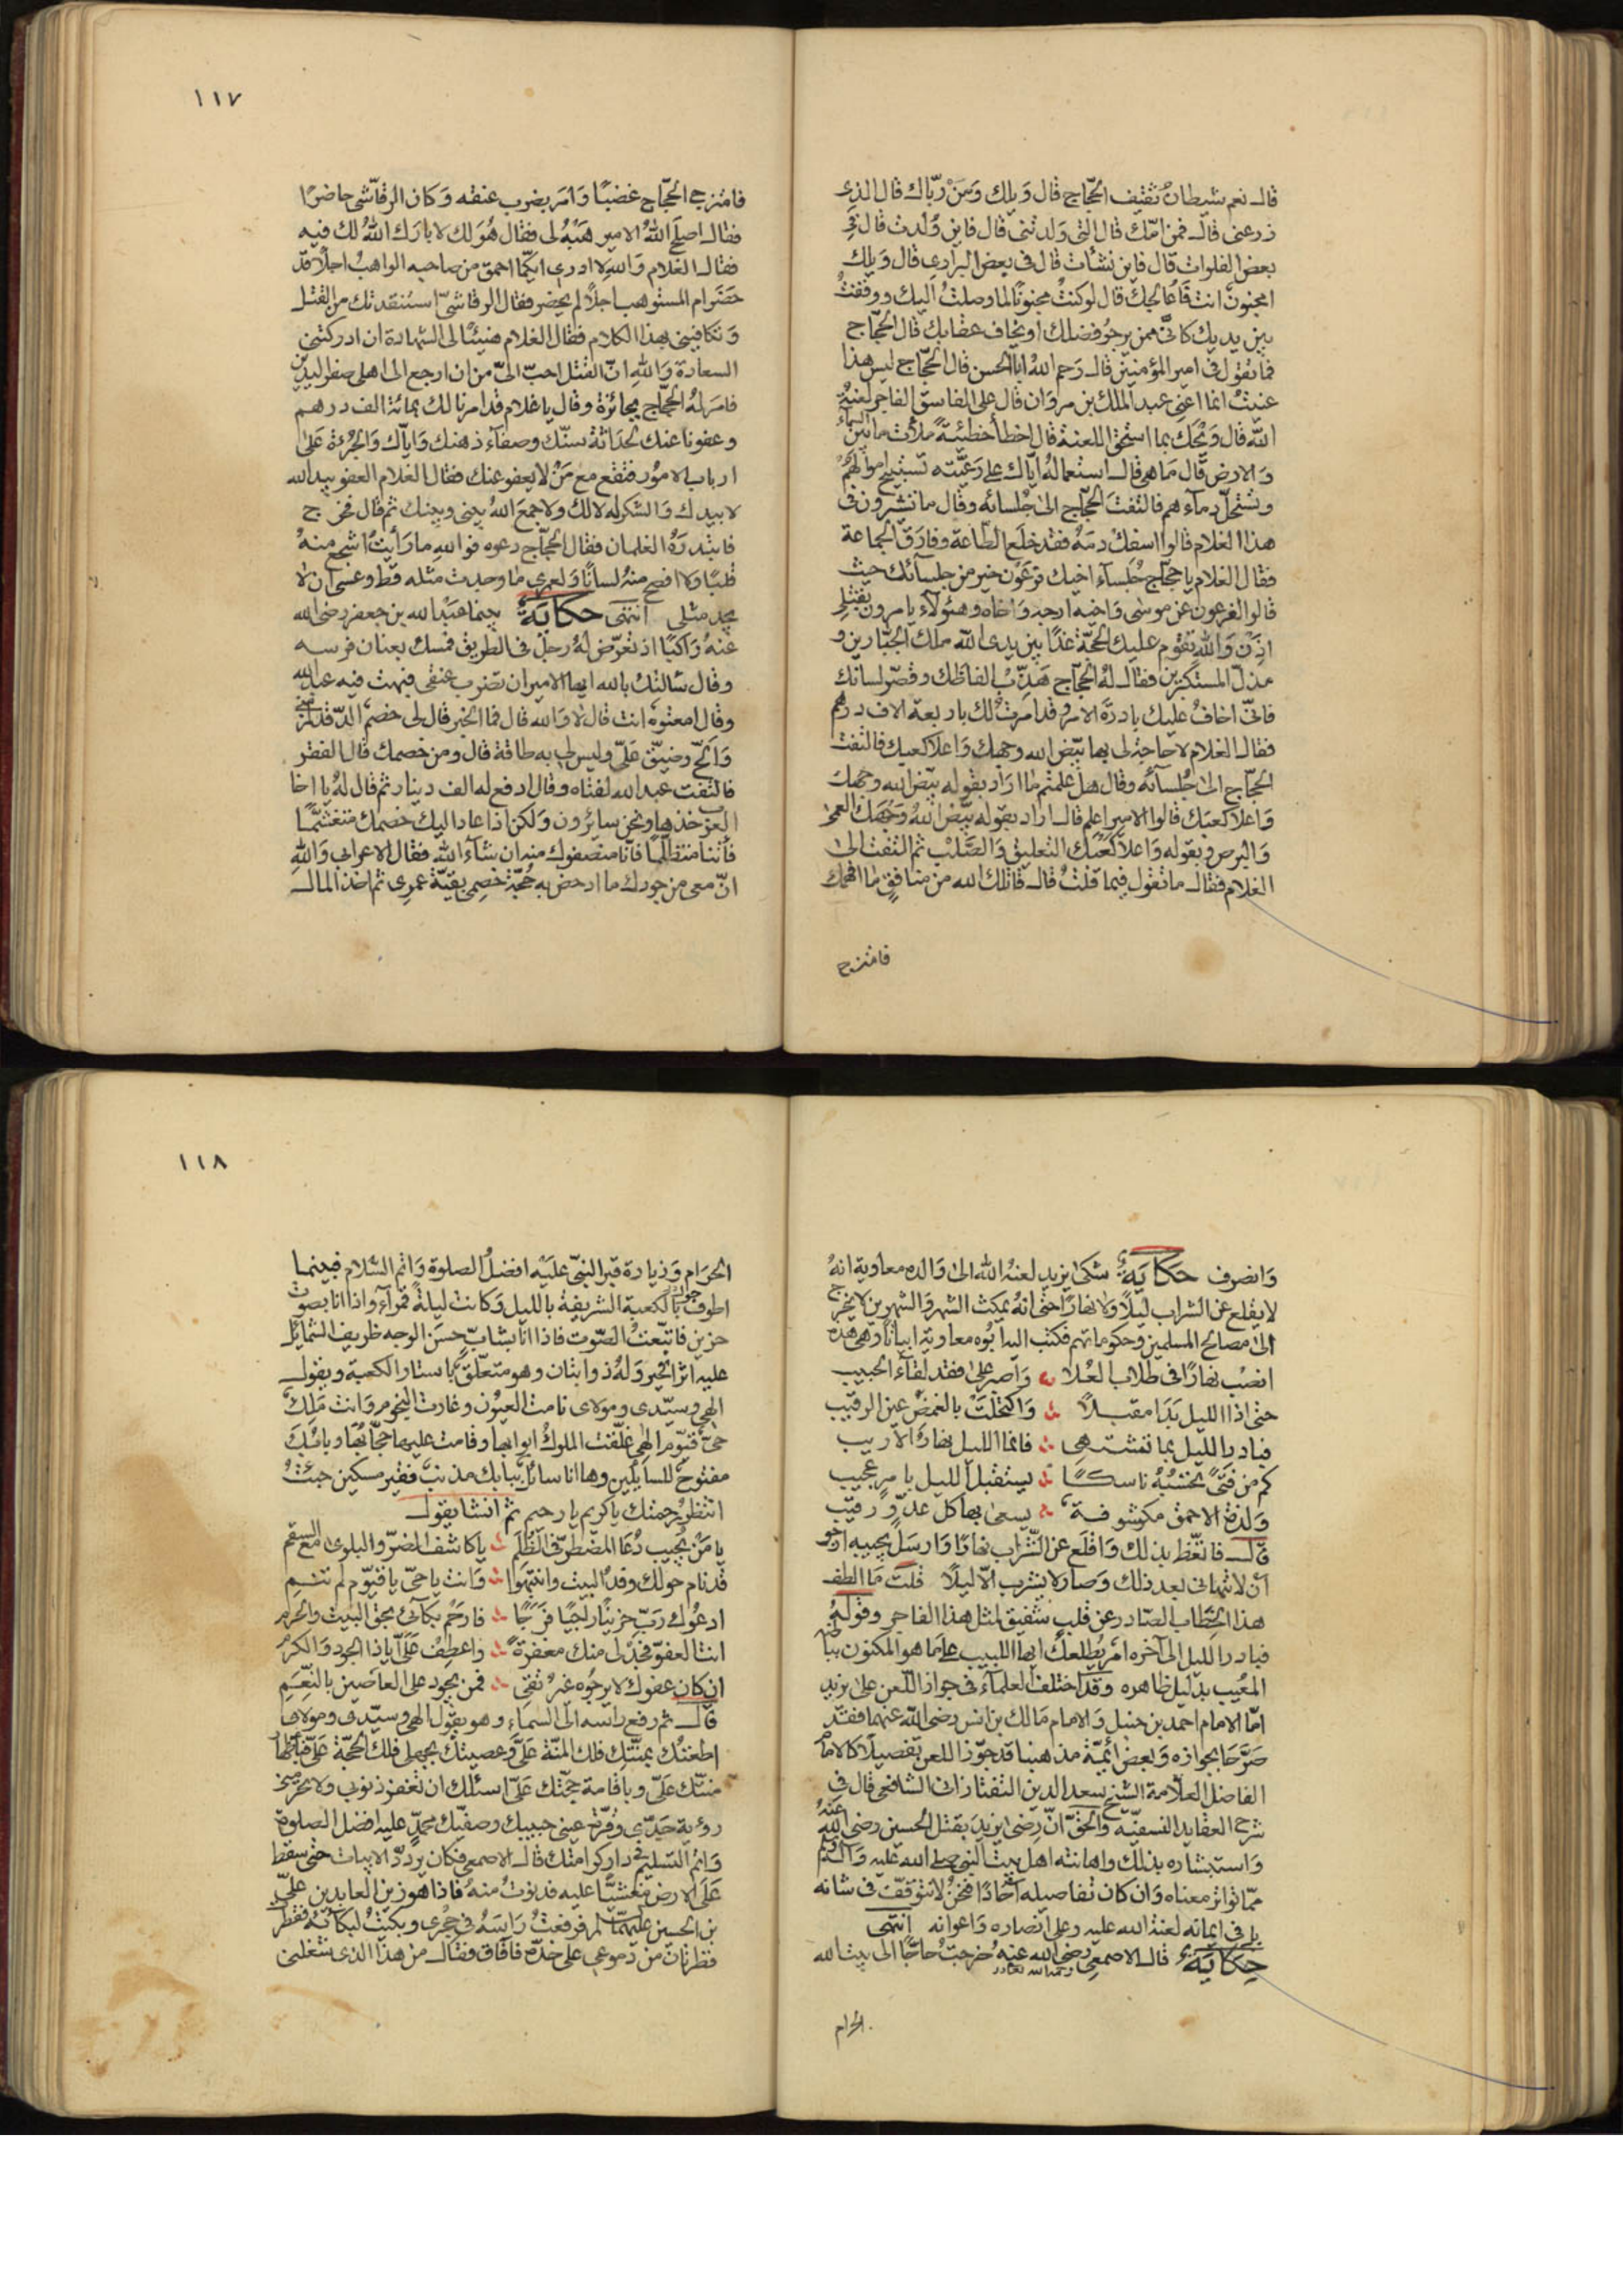 قال نعم شيطان ثقيف الحجّاج قال ويلك ومن ربّاك قال الذى
ذرعنى قال فمن امّك قال التى ولدتنى قال فاين ولدت قال فى
بعض الفلوات قال فاين نشات قال فى بعض البرارى قال ويلك
امجنون انت فاعالجك قال لو كنت مجنونًا لما وصلت اليك ووقفت
بين يديك كانّى ممن يرجو فضلك او يخاف عقابك قال الحجّاج
فما تقول فى امير المؤمنين قال رحم الله ابا الحسن قال الحجّاج ليس هذا
عنيت انما اعنى عبد الملك بن مروان قال على الفاسق الفاجر لعنة
الله قال ويحك بما استحق اللعنة قال اخطأ خطيئةً ملأت ما بين السماء
والارض قال ما هى قال استعماله ايّاك على رعيّته تستبيح اموالهم
وتستحلّ دمآءهم فالتفت الحجّاج الى جلسائه وقال ما تشيرون فى
هذا الغلام قالوا اسفك دمه فقد خلع الطاعة وفارق الجماعة
فقال الغلام يا حجّاج جلسآء اخيك فرعون خير من جلسآئك حيث
قالوا لفرعون عن موسى واخيه ارجه واخاه وهئولآء يامرون بقتلى
اذن والله تقوم عليك الحجّة غدًا بين يدى الله ملك الجبّارين و
مذلّ المستكبرين فقال له الحجّاج هذّب الفاظك وقصّر لسانك
فانّى اخاف عليك بادرة الامر وقد امرت لك باربعة الاف درهم
فقال الغلام لا حاجة لى بها بيّض الله وجهك واعلا كعبك فالتفت
الحجّاج الى جلسآئه وقال هل علمتم ما اراد بقوله بيّض الله وجهك
واعلا كعبك قالوا الامير اعلم قال اراد بقوله بيّض الله وجهك العمى
والبرص وبقوله واعلا كعبك التعليق والصّلب ثم التفت الى
الغلام فقال ما تقول فيما قلت قال قاتلك الله من منافق ما افهمك
فامتزج
١١٧
فامتزج الحجّاج غضبًا وامر بضرب عنقه وكان الرقاشى حاضرًا
فقال اصلح الله الامير هبه لى فقال هو لك لا بارك الله لك فيه
فقال الغلام والله لا ادرى ايّكما احمق من صاحبه الواهب اجلًا قد
حضر ام المستوهب اجلًا لم يحضر فقال الرقاشى استنقذتك من القتل
وتكافينى بهذا الكلام فقال الغلام هنيئًا لى الشهادة ان ادركتنى
السعادة والله انّ القتل احبّ الىّ من ان ارجع الى اهلى صفر اليدين
فامر له الحجّاج بجائزة وقال يا غلام قد امرنا لك بمائة الف درهم
وعفونا عنك لحداثة سنّك وصفآء ذهنك وايّاك والجرئة على
ارباب الامور فتقع مع من لا يعفو عنك فقال الغلام العفو بيد الله
لا بيدك والشكر له لا لك ولا جمع الله بينى وبينك ثم قال فخرج
فابتدره الغلمان فقال الحجّاج دعوه فو الله ما رأيت اشجع منه
قلبًا ولا افصح منه لسانًا ولعمرى ما وجدت مثله قط وعسى ان لا
يجد مثلى انتهى حكاية بينما عبد الله بن جعفر رضى الله
عنه راكبًا اذ تعرّض له رجل فى الطريق فمسك بعنان فرسه
وقال سالتك بالله ايها الامير ان تضرب عنقى فبهت فيه عبد الله
وقال امعتوه انت قال لا والله قال فما الخبر قال لى خصم الدّ قد لزمنى
والحّ وضيّق علىّ وليس لى به طاقة قال ومن خصمك قال الفقر
فالتفت عبد الله لفتاه وقال ادفع له الف دينار ثم قال له يا اخا
العرب خذها ونحن سائرون ولكن اذا عاد اليك خصمك متغشّمًا
فأتنا متظلّمًا فانا منصفوك منه ان شآء الله فقال الاعرابى والله
انّ معى من جودك ما ادحض به حجّة خصمى بقيّة عمرى ثم اخذ المال
وانصرف حكاية شكى يزيد لعنه الله الى والده معاوية انه
لا يقلع عن الشراب ليلًا ولا نهارًا حتى انه يمكث الشهر والشهرين لا يخرج
الى مصالح المسلمين وحكوماتهم فكتب اليه ابوه معاوية ابياتًا وهى هذه
انصب نهارًا فى طلاب العلا واصبر على فقد لقآء الحبيب
حتى اذا الليل بدا مقبلًا واكتحلت بالغمض عين الرقيب
فبادر الليل بما تشتهى فانما الليل نهار الاريب
كم من فتًى تحسبه ناسكًا يستقبل الليل بامر عجيب
ولذة الاحمق مكشوفة يسعى بها كل عدوّ رقيب
قال فاتّعظ بذلك واقلع عن الشّراب نهارًا وارسل يجيبه ارجو
ان لا تنهانى بعد ذلك وصار لا يشرب الّا ليلًا قلت ما الطف
هذا الخطاب الصّادر عن قلب شفيق لمثل هذا الفاجر وقوله
فبادر الليل الى آخره امر يطلعك ايها اللبيب على ما هو المكنون بباطنه
المغيب بدليل ظاهره وقد اختلف العلمآء فى جواز اللّعن على يزيد
امّا الامام احمد بن حنبل والامام مالك بن انس رضى الله عنهما فقد
صرّحا بجوازه وبعض ائمّة مذهبنا قد جوّز اللعن تفصيلًا كالامام
الفاضل العلّامة الشيخ سعد الدين التفتازانى الشافعى قال فى
شرح العقايد النسفيّة والحقّ انّ رضى يزيد بقتل الحسين رضى الله عنه
واستبشاره بذلك واهانته اهل بيت النبى صلى الله عليه وآله وسلم
ممّا تواتر معناه وان كان تفاصيله آحادًا فنحن لا نتوقّف فى شانه
بل فى ايمانه لعنة الله عليه وعلى انصاره واعوانه انتهى
حكاية قال الاصمعى رضى الله عنه خرجت حاجًّا الى بيت الله
رحمه الله تعالى
الحرام
١١٨
الحرام وزيارة قبر النبىّ عليه افضل الصلوة واتم السّلام فبينما
اطوف حول الكعبة الشريفة بالليل وكانت ليلة قمرآء واذا انا بصوت
حزين فاتّبعت الصّوت فاذا انا بشابّ حسن الوجه ظريف الشمائل
عليه اثر الخير وله ذوابتان وهو متعلّق باستار الكعبة ويقول
الهى وسيّدى ومولاى نامت العيون وغارت النجوم وانت ملك
حىّ قيّوم الهى غلّقت الملوك ابوابها وقامت عليها حجّابها وبابك
مفتوح للسايلين وها انا سائل ببابك مذنب فقير مسكين جئت
انتظر رحمتك يا كريم يا رحيم ثم انشا يقول
يا من يجيب دعا المضطرّ فى الظّلم يا كاشف الضرّ والبلوى مع السقم
قد نام حولك وفد البيت وانتبهوا وانت يا حىّ يا قيّوم لم تنم
ادعوك ربّ حزينًا راجيًا فرجًا فارحم بكآئى بحق البيت والحرم
انت العفوّ فجد لى منك مغفرةً واعطف علىّ ايا ذا الجود والكرم
ان كان عفوك لا يرجوه غير تقى فمن يجود على العاصين بالنّعم
قال ثم رفع راسه الى السماء وهو يقول الهى وسيّدى ومولاى
اطعتك بمنّتك فلك المنّة علىّ وعصيتك بجهلى فلك الحجّة علىّ فباظهار
منّتك علىّ وباقامة حجّتك علىّ اسئلك ان تغفر ذنوبى ولا تحرمنى
رؤية جدّى وقرّة عينى حبيبك وصفيّك محمّد عليه افضل الصلوة
واتم التسليم فى دار كرامتك قال الاصمعى فكان يردّد الابيات حتى سقط
على الارض مغشيًّا عليه فدنوت منه فاذا هو زين العابدين علىّ
بن الحسين عليهما السلام فرفعت راسه فى حجرى وبكيت لبكائه فقطر
قطرتان من دموعى على خدّه فآفاق وقال من هذا الذى شغلنى